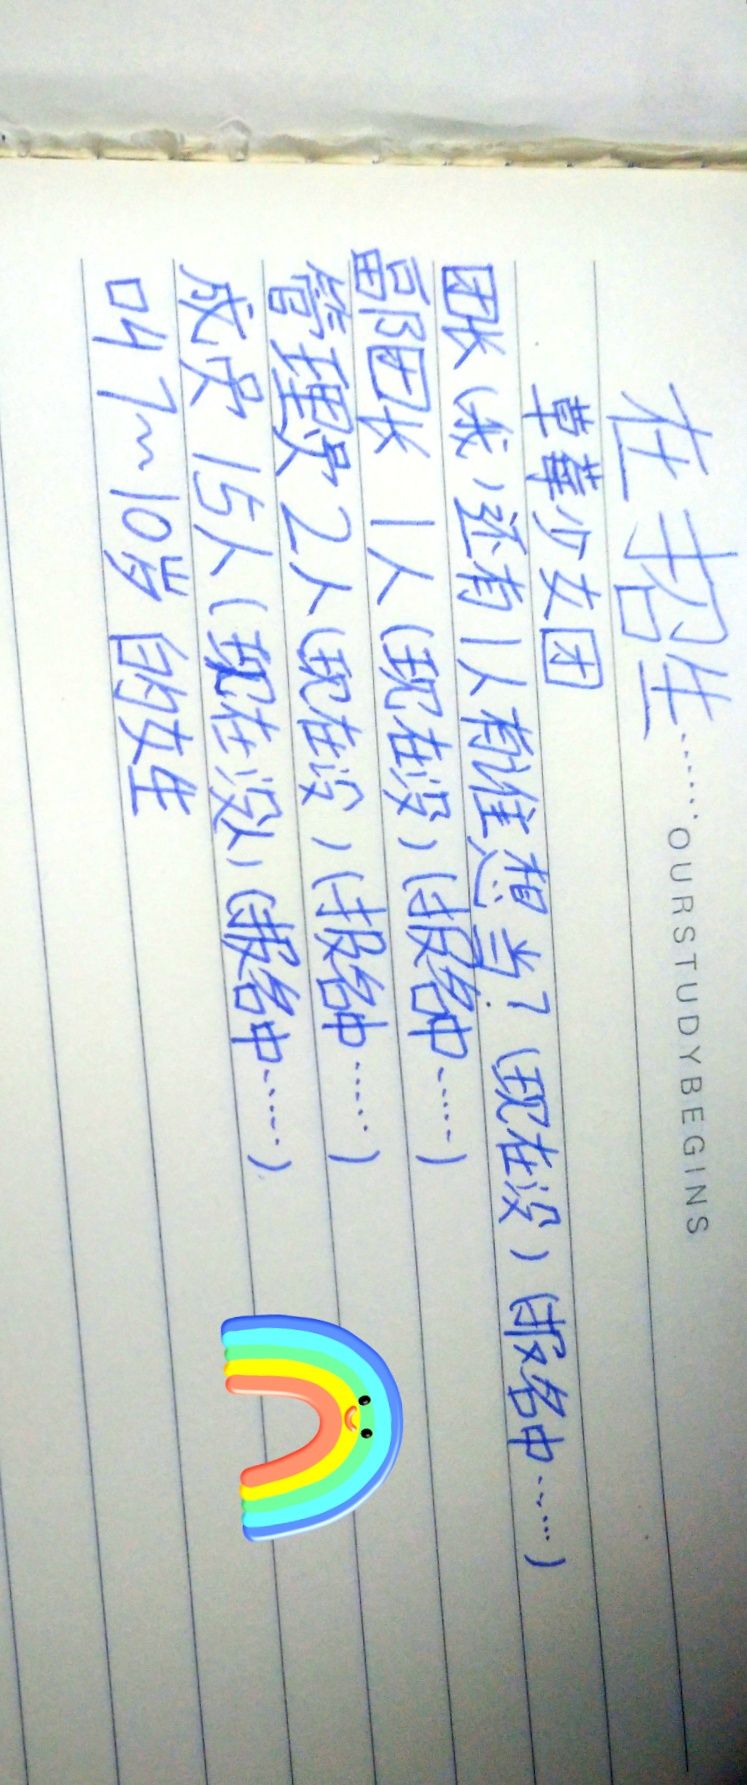 OURSTUDYBEGINS
在招生……
草莓少女团
团长(我)还有1人有谁想当?(现在没)(报名中……)
副团长 1人(现在没)(报名中……)
管理员2人(现在没)(报名中……)
成员 15人(现在没人)(报名中……)
叫7~10岁的女生